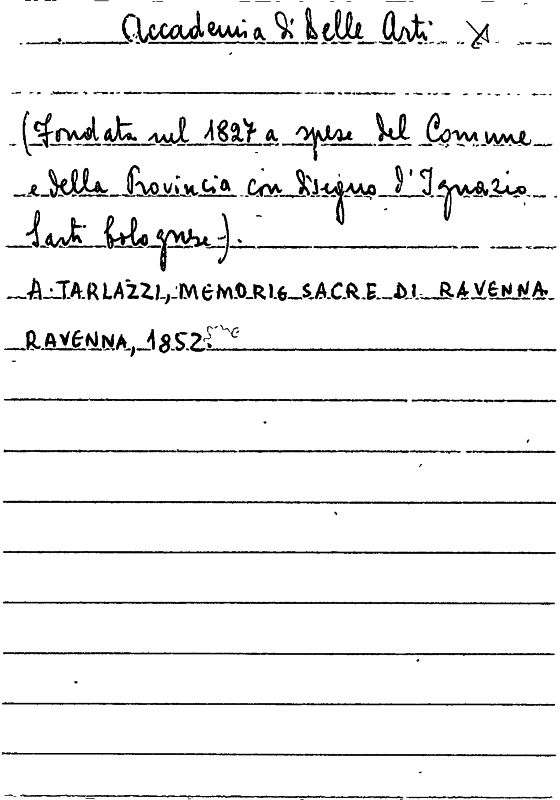 Accademia di Belle Arti
(Fondata nel 1827 a spese del Comune
e della Provincia con disegno d'Ignazio
Sarti bolognese).
A. TARLAZZI, MEMORIE SACRE DI RAVENNA.
RAVENNA, 1852.